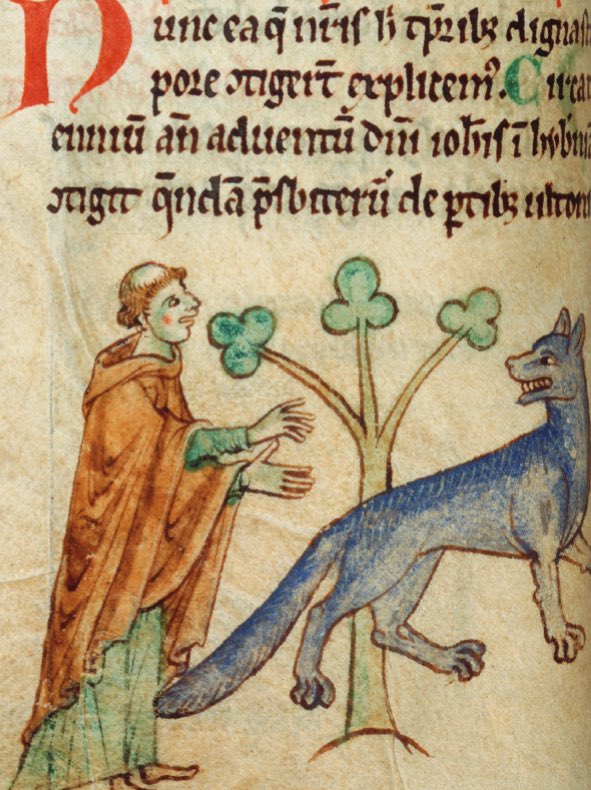 Nunc ea q̄ nr̄is h̄ tp̄ribꝫ digna
pore ↄtigert̄ explicem᷒. Circa
enniū añ aduentū dn̄i ioh̄is ī hyb̄ni
ↄtigit q̄ndā p̄sbiterū de ꝑtibꝫ ultoni